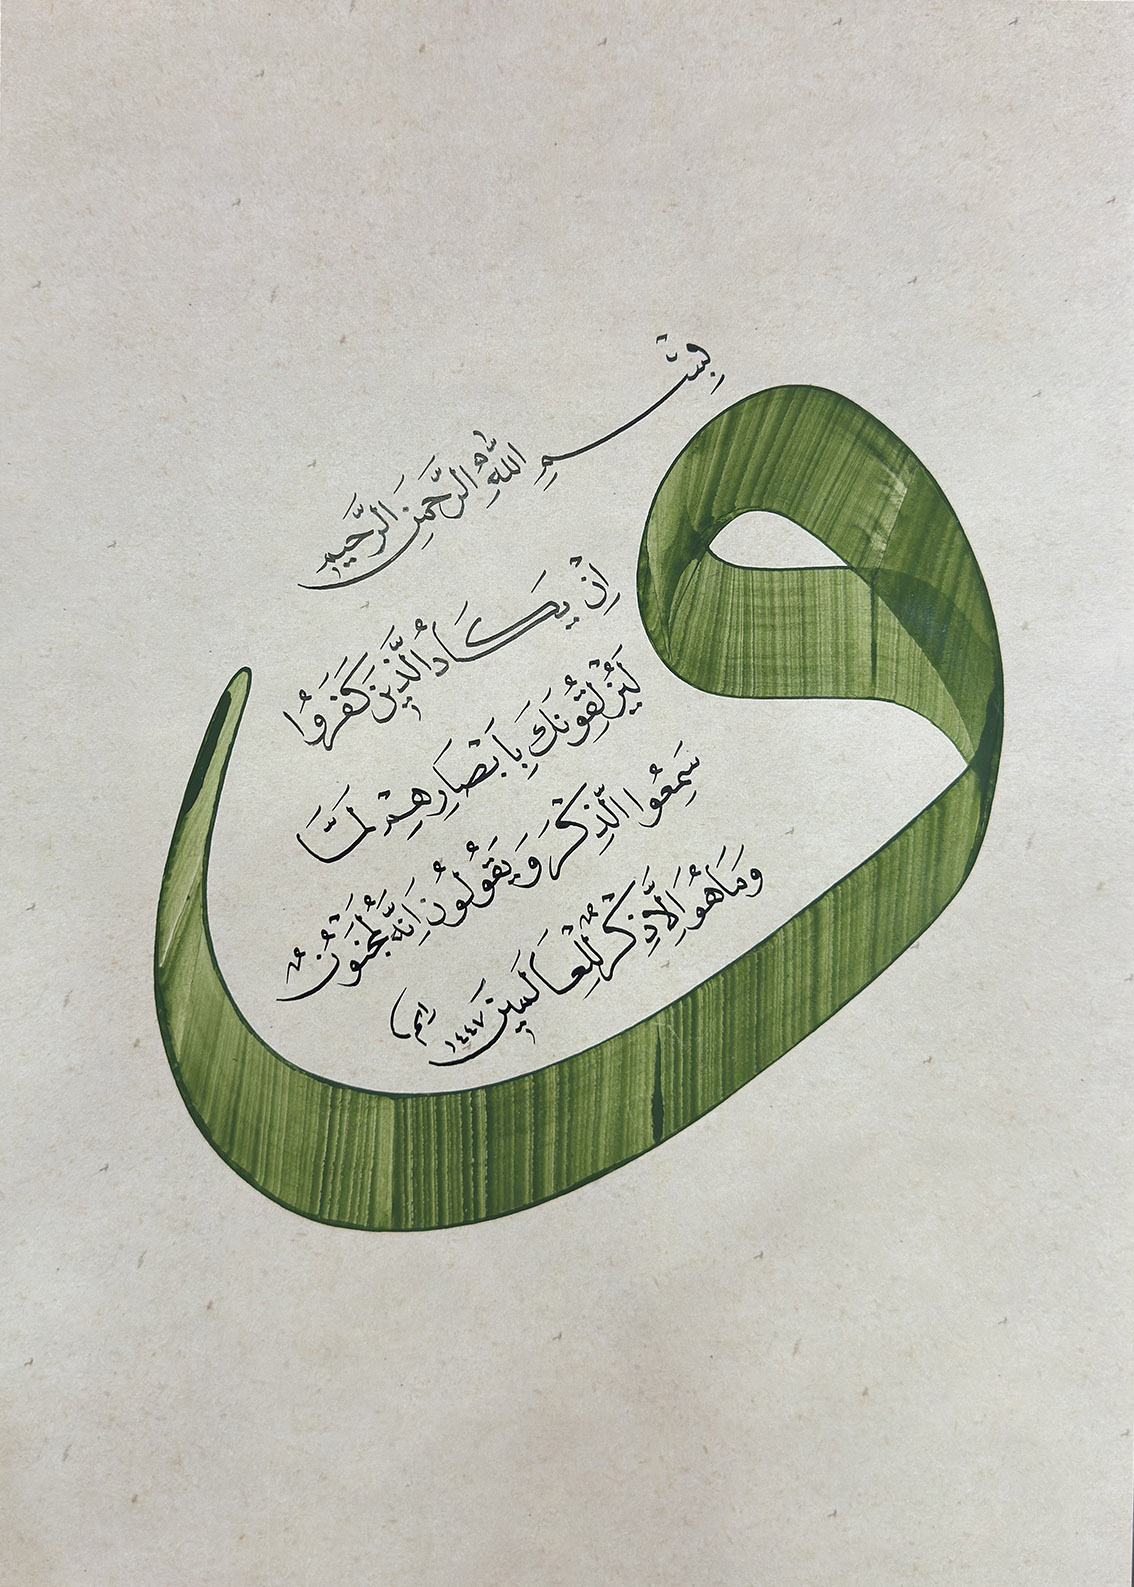 بِسْمِ اللهِ الرَّحْمَنِ الرَّحِيمِ
و
اِنْ يَكَادُ الَّذِينَ كَفَرُوا
لَيُزْلِقُونَكَ بِاَبْصَارِهِمْ لَمَّا
سَمِعُوا الذِّكْرَ وَيَقُولُونَ اِنَّهُ لَمَجْنُونٌ
وَمَا هُوَ اِلَّا ذِكْرٌ لِلْعَالَمِينَ
١٤٤٧